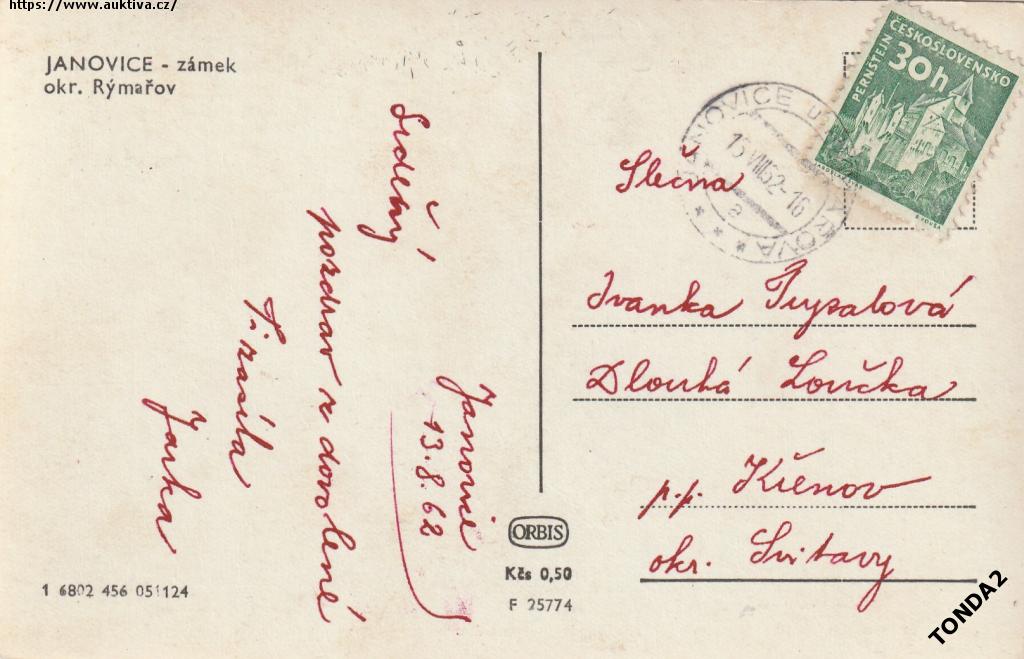 https://www.auktiva.cz/
JANOVICE - zámek
okr. Rýmařov
Janovice
13.8.62
Srdečný
pozdrav z dovolené
Ti zasílá
Jarka
1 6802 456 051124
ORBIS
Kčs 0,50
F 25774
ČESKOSLOVENSKO
PERNŠTEJN
30h
JANOVICE U
13.VIII.62-16
a
Slečna
Ivanka
Dlouhá Loučka
p.p. Křenov
okr. Svitavy
TONDA2